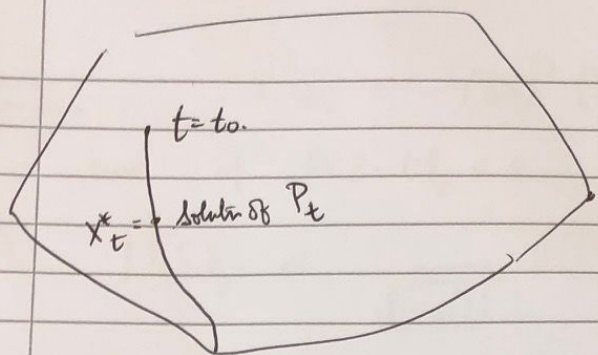 t = t₀.
X*ₜ = Solutn of Pₜ